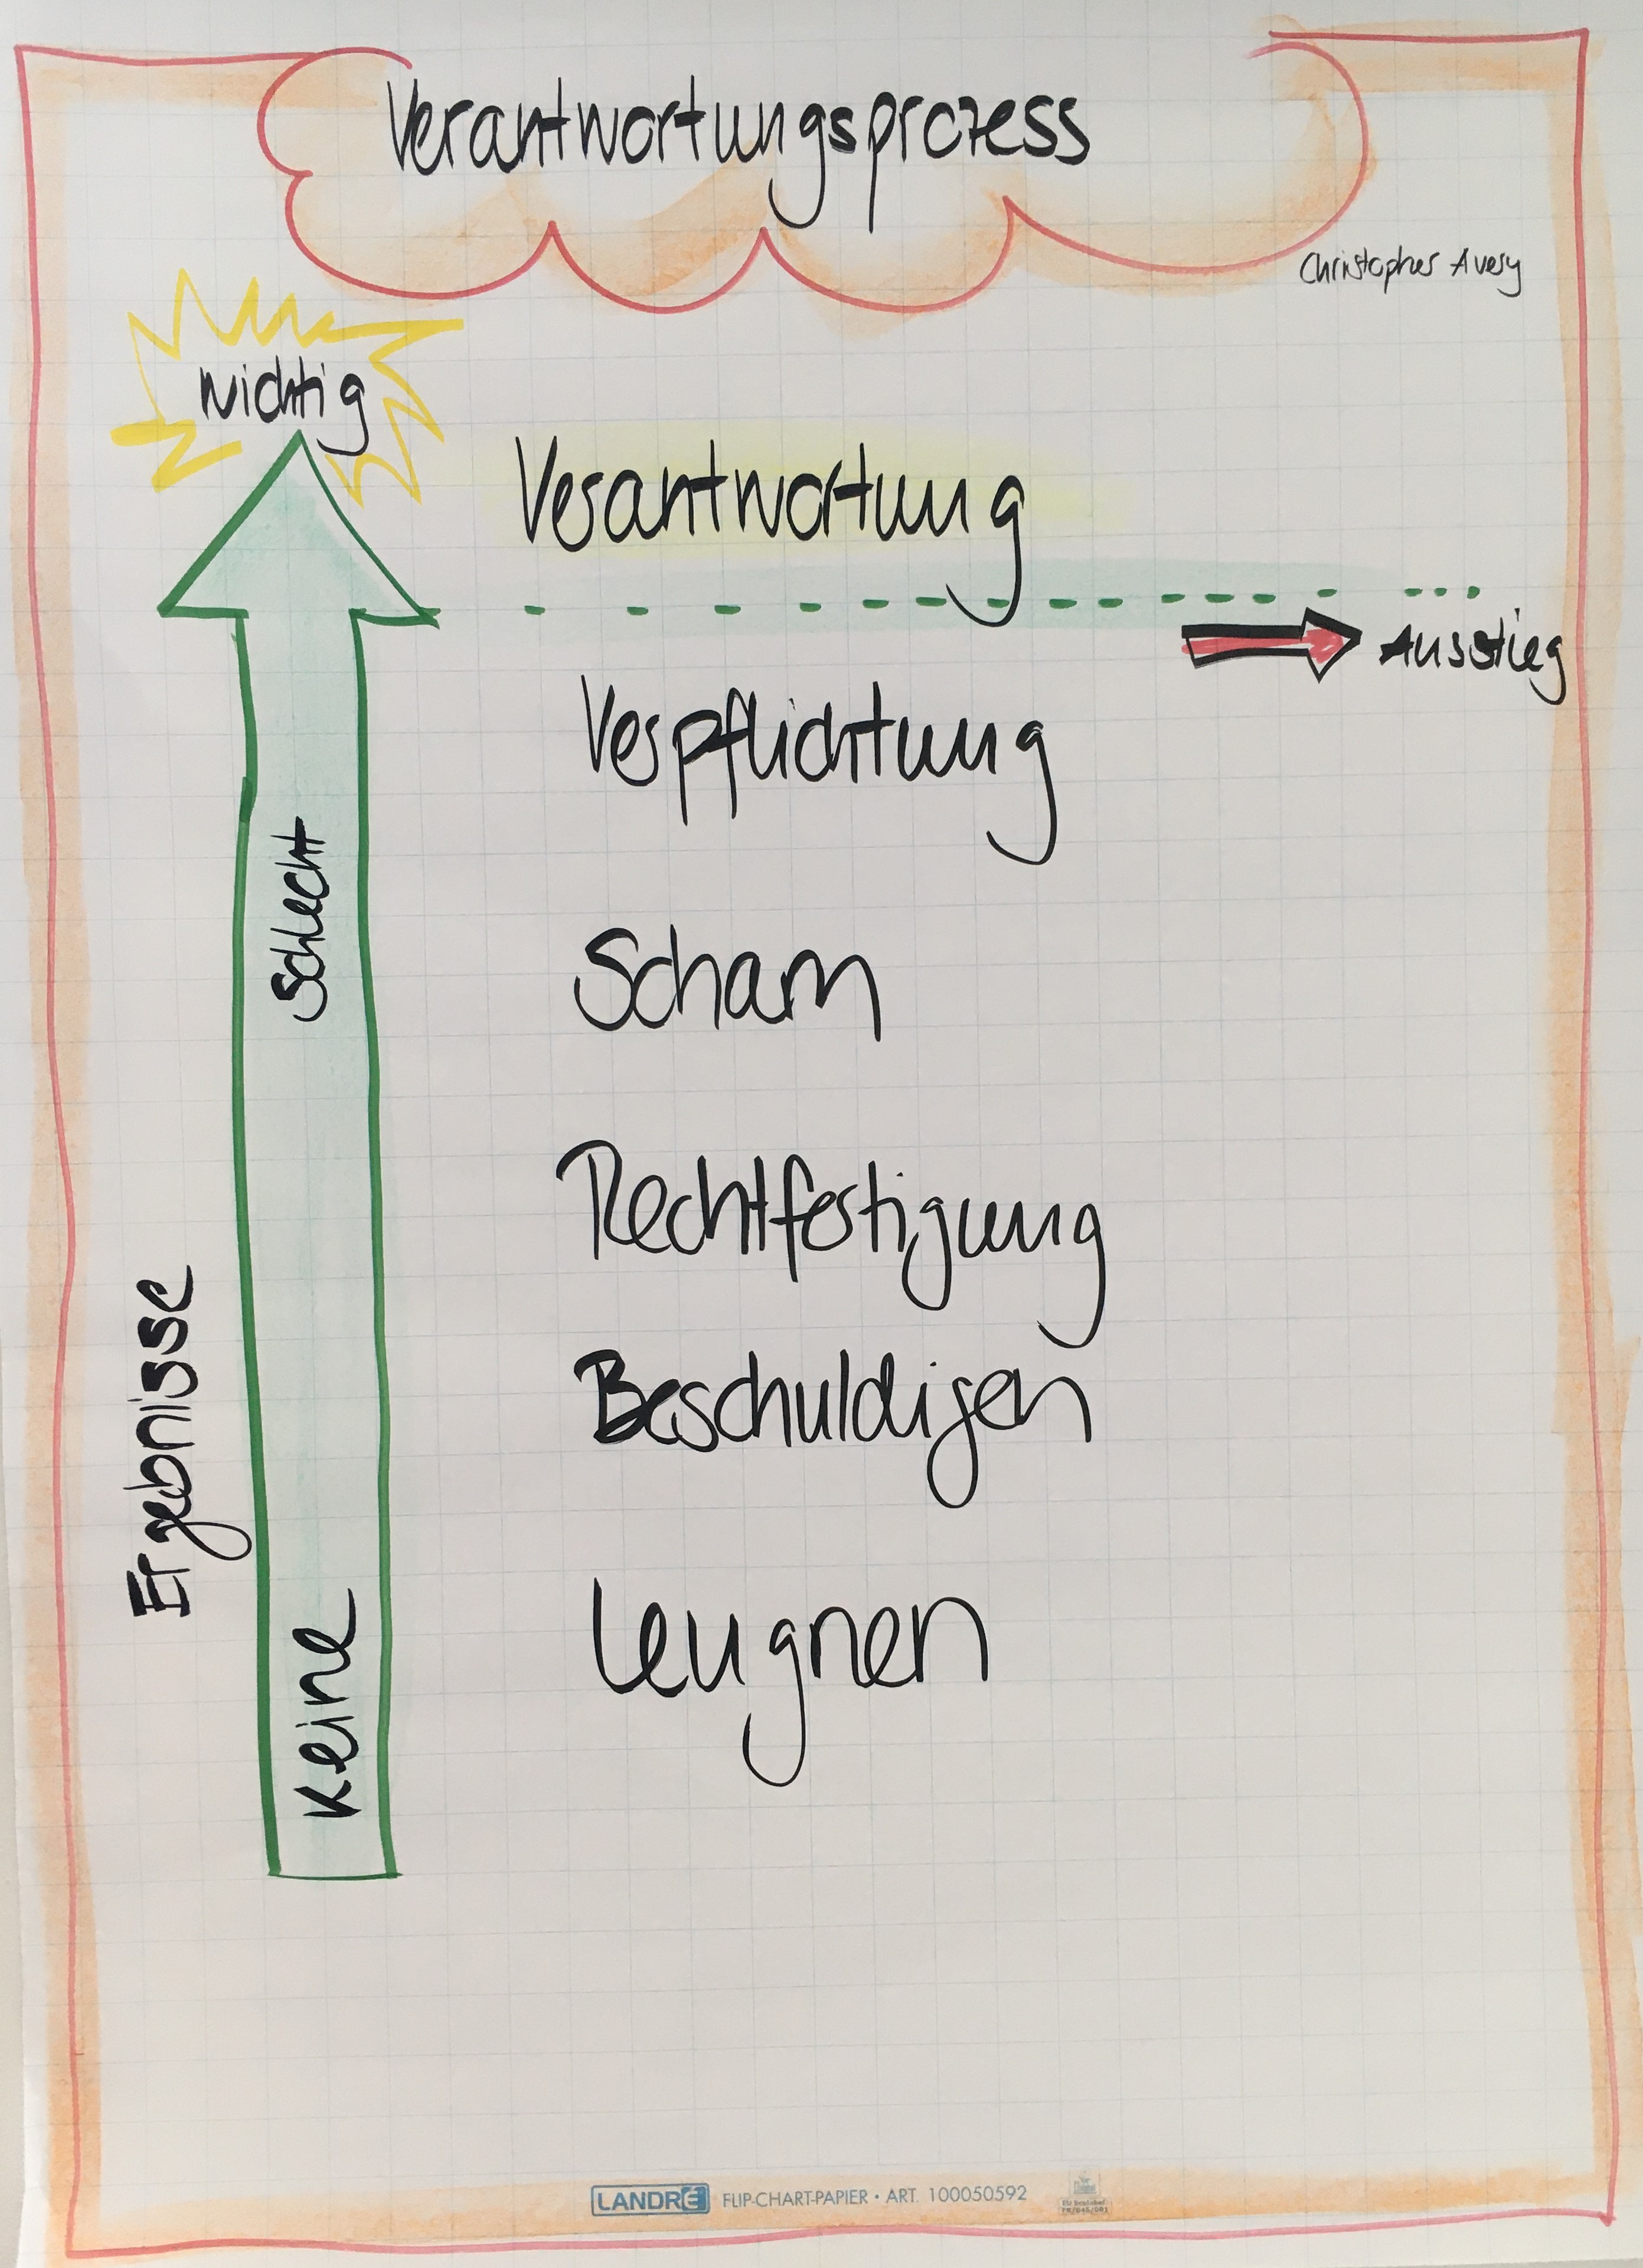 Verantwortungsprozess
Christopher Avery
wichtig
Verantwortung
Ausstieg
Verpflichtung
Schlecht
Scham
Rechtfertigung
Ergebnisse
Beschuldigen
Leugnen
Keine
LANDRÉ FLIP-CHART-PAPIER • ART. 100050592